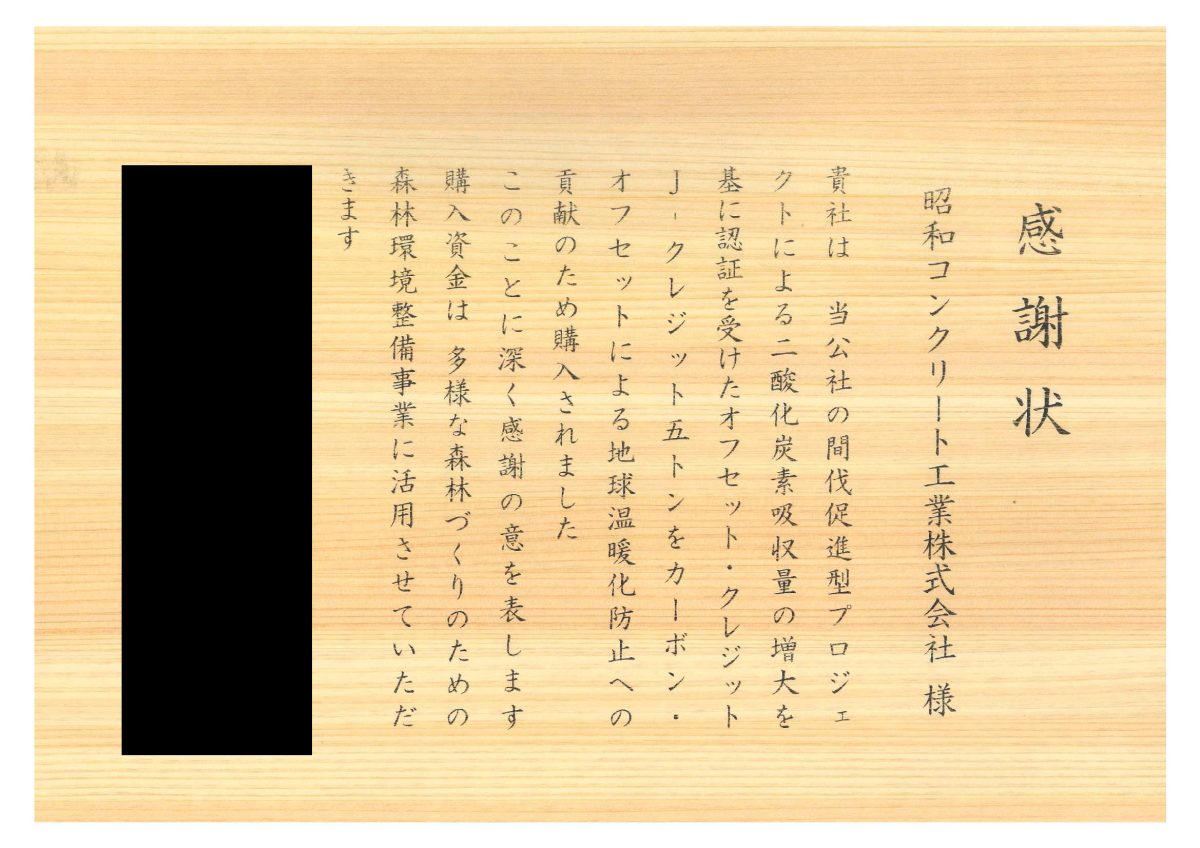 感謝状
昭和コンクリート工業株式会社 様
貴社は 当公社の間伐促進型プロジェ
クトによる二酸化炭素吸収量の増大を
基に認証を受けたオフセット・クレジット
J-クレジット五トンをカーボン・
オフセットによる地球温暖化防止への
貢献のため購入されました
このことに深く感謝の意を表します
購入資金は 多様な森林づくりのための
森林環境整備事業に活用させていただ
きます